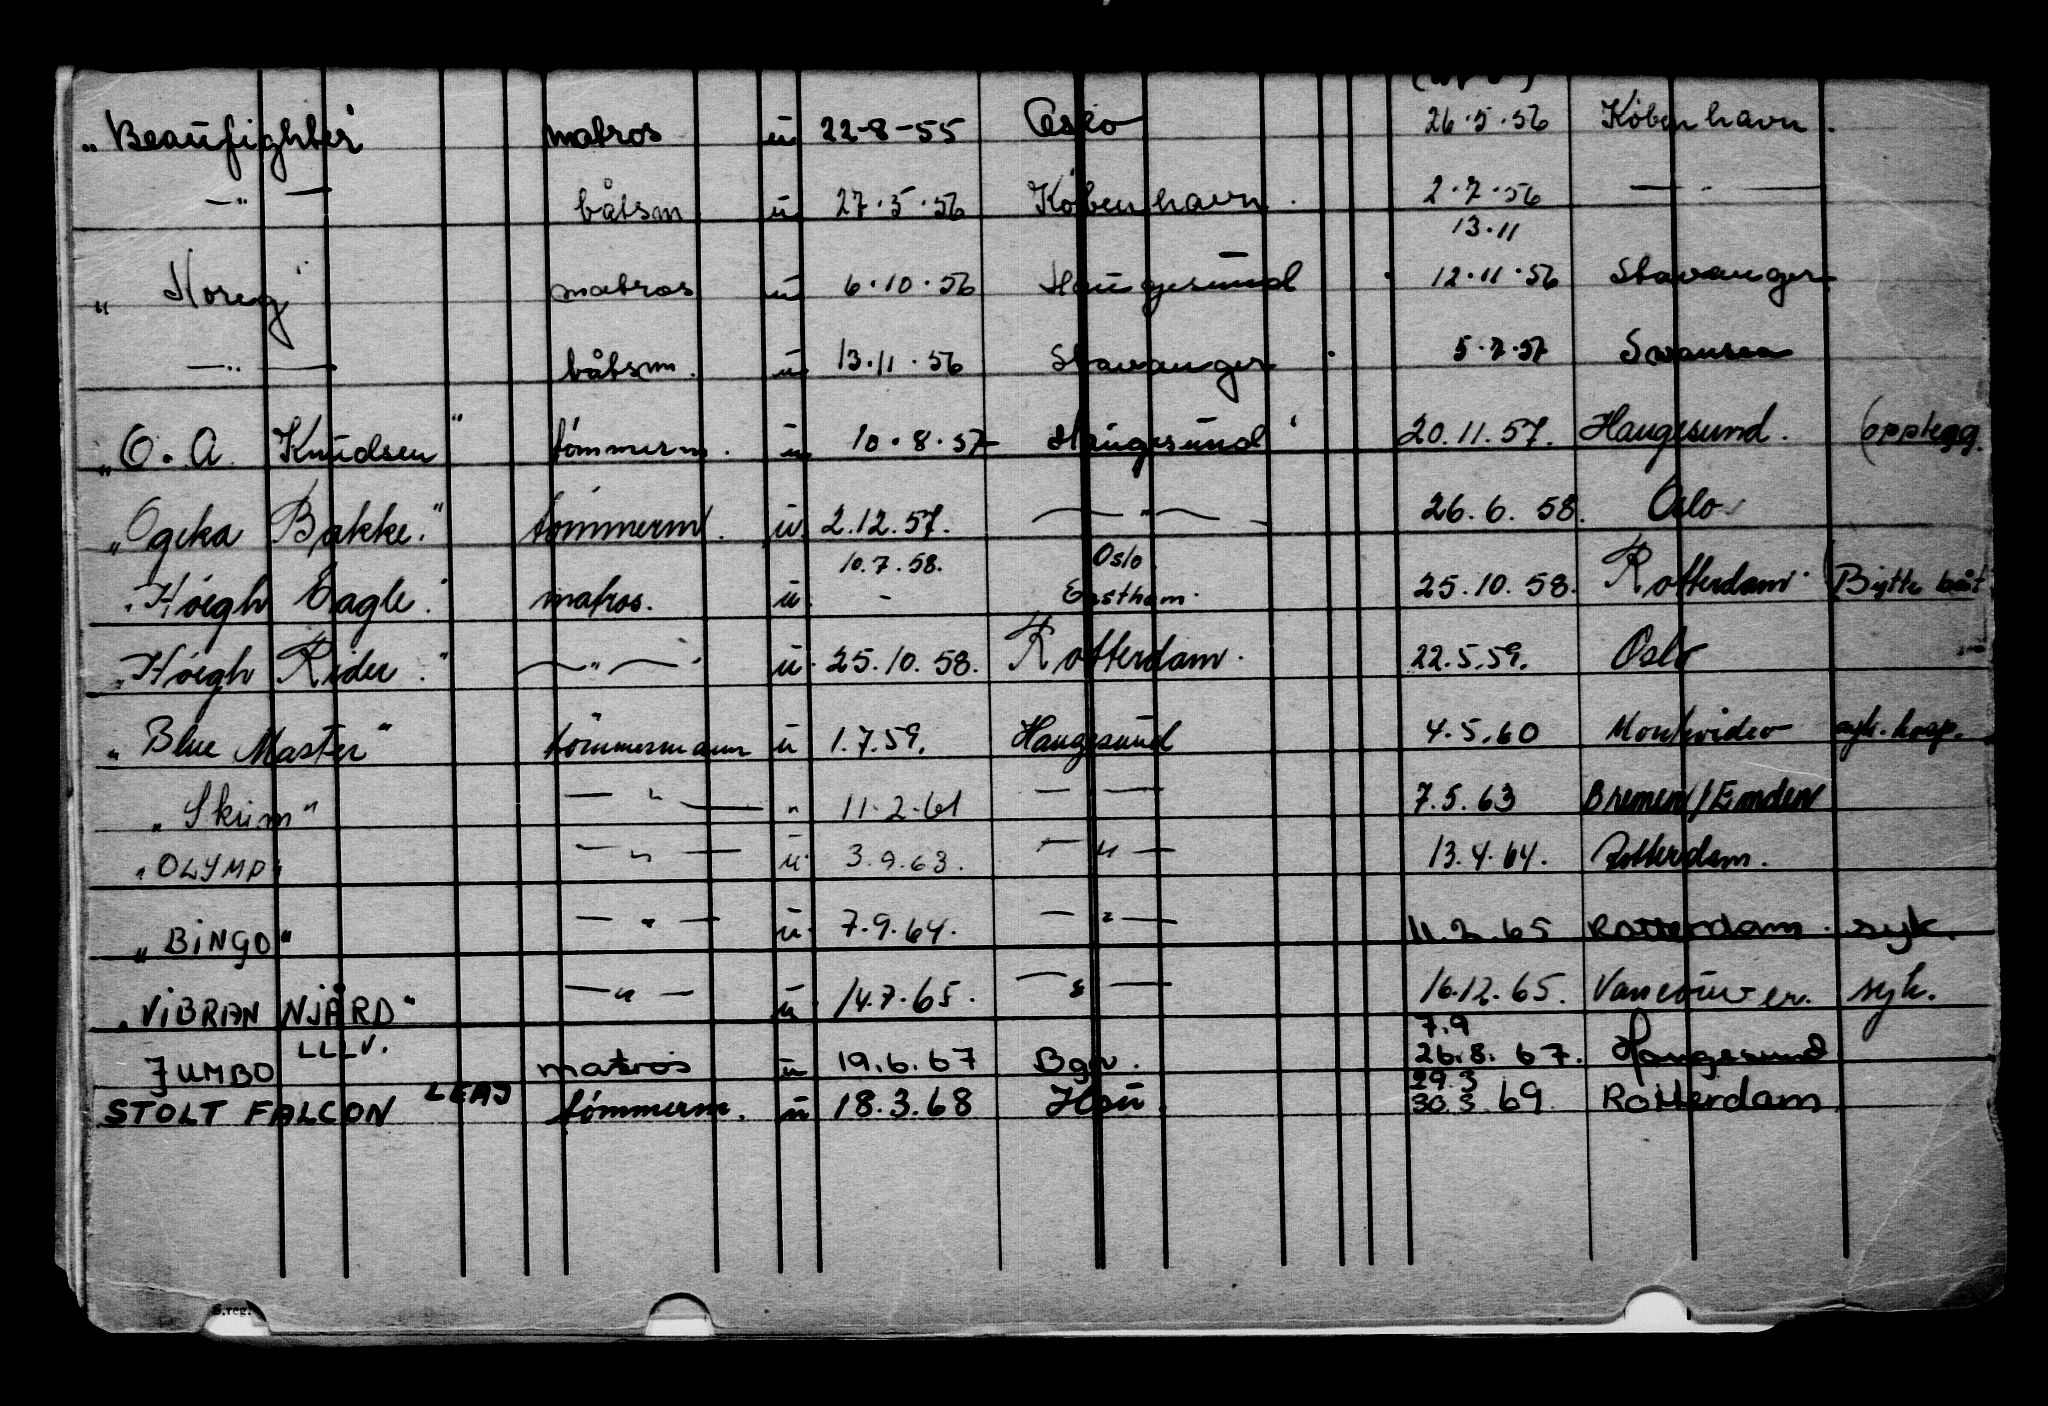 „Beaufighter" matros u 22-8-55 Oslo 26.5.56 København.
—"— båtsm u 27.5.56 København. 2.7.56 —"—
13.11
„Noreg" matros u 6.10.56 Haugesund 12.11.56 Stavanger
—"— båtsm. u 13.11.56 Stavanger 5.7.57 Swansea
„O. A. Knudsen" tømmerm. u 10.8.57 Haugesund 20.11.57. Haugesund. (opplegg.
„Ogeka Bakke." tømmerm. u. 2.12.57. —"— 26.6.58. Oslo
10.7.58. Oslo
„Höegh Eagle." matros. u. - Eastham. 25.10.58. Rotterdam. (Bytte båt
„Höegh Rider." —"— u. 25.10.58. Rotterdam. 22.5.59. Oslo
„Blue Master" tømmermann u 1.7.59. Haugesund 4.5.60 Montevideo syk. hosp.
„Skum" —"— " 11.2.61 —"— 7.5.63 Bremen/Emden
„OLYMP" —"— u. 3.9.63. —"— 13.4.64. Rotterdam.
„BINGO" —"— u. 7.9.64. —"— 11.2.65 Rotterdam. syk.
„VIBRAN NJÅRD" —"— u 14.7.65. —"— 16.12.65. Vancouver. syk.
LLLV. 7.9
JUMBO matros u 19.6.67 Bgv. 26.8.67. Haugesund
LEAJ 29.3
STOLT FALCON tømmerm. u 18.3.68 Hau. 30.3.69 Rotterdam.
S.reg.